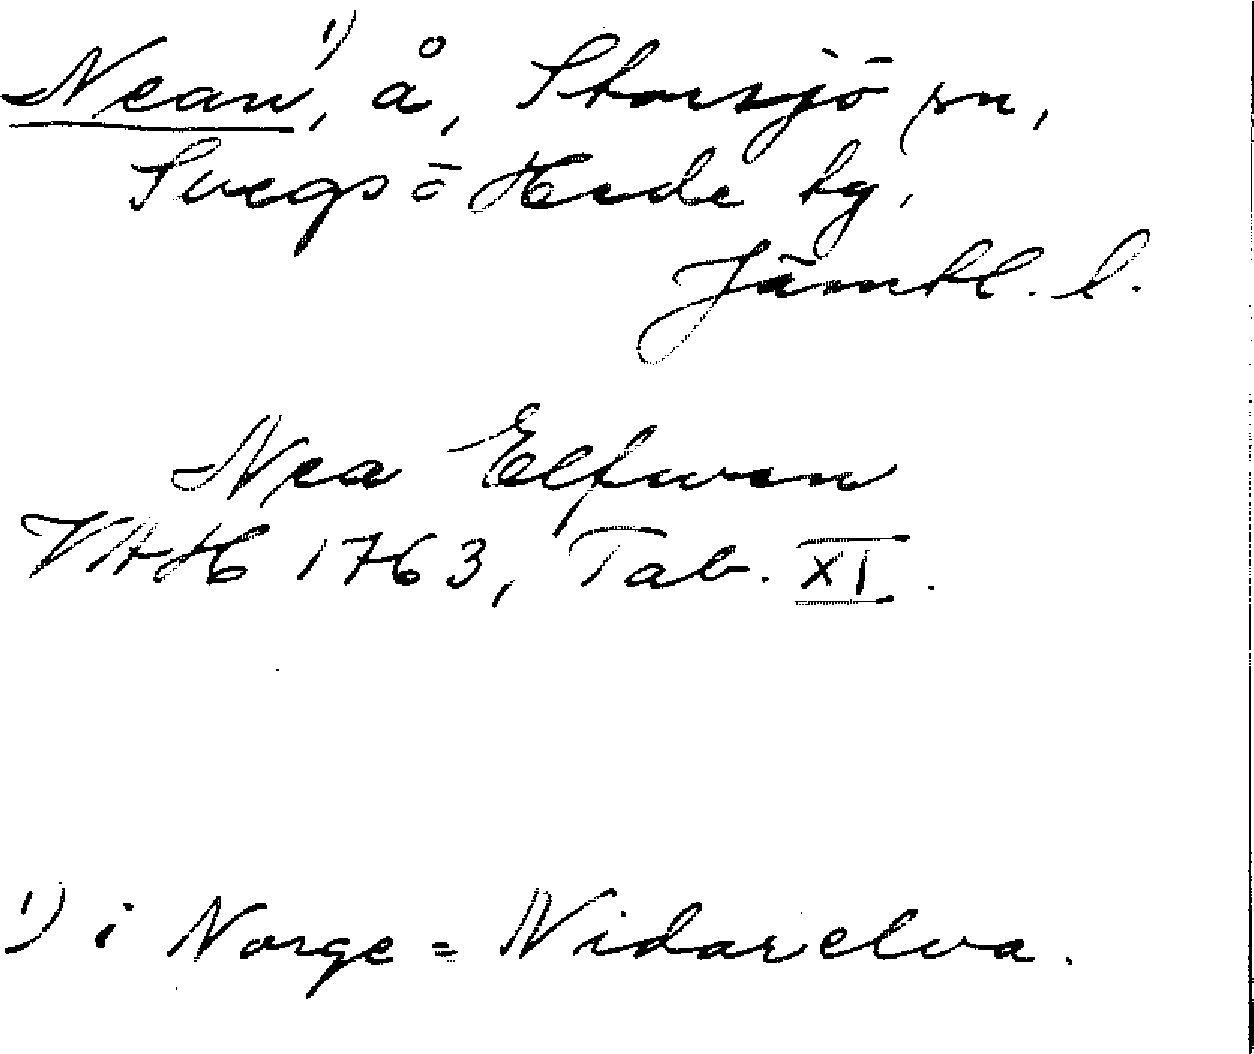 Nean ¹), å, Storsjö sn,
Svegs o Hede tg.
Jämtl. l.
Nea Elfwen
VAH 1763, Tab. XI.
¹) i Norge = Nidarelva.